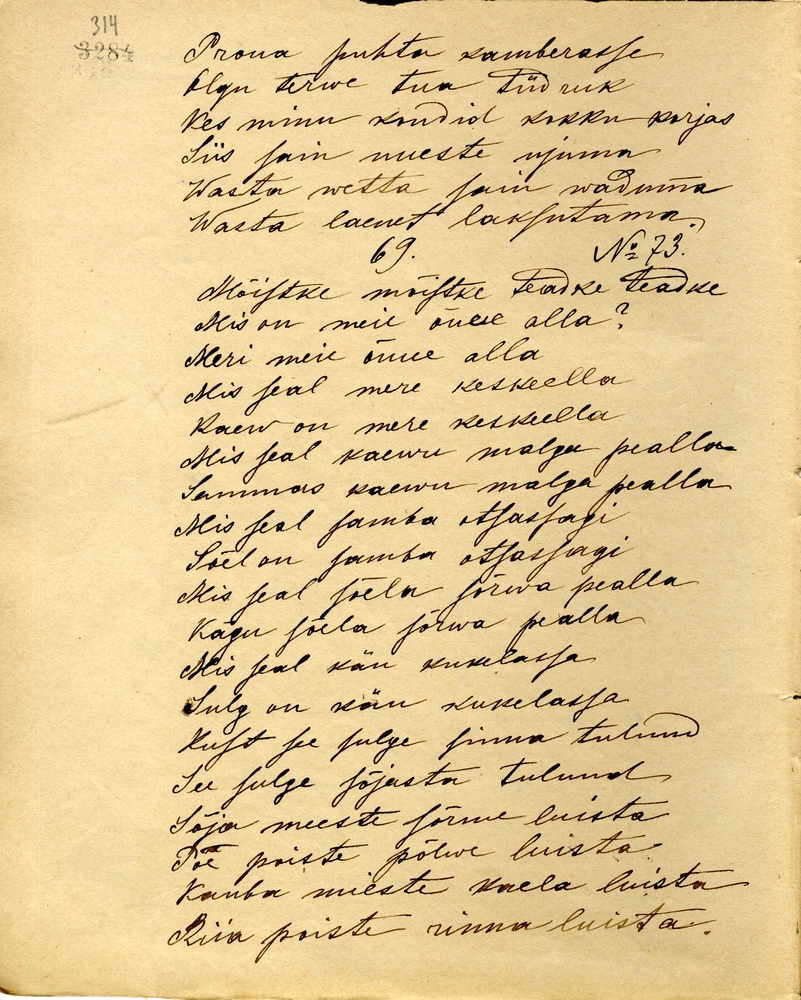 314
3284
Proua puhta kamberasse
Olgu terwe tua tüdruk
Kes minu kondid kokku korjas
Siis sain uueste ujuma
Wasta wetta sain waduma
Wasta laenet laksutama.
69. № 73.
Mõistke mõistke teadke teadke
Mis on meie õuese alla?
Meri meie õuue alla
Mis seal mere keskeella
Kaew on mere keskeella
Mis seal kaewu malga pealla
Sammas kaewu malga pealla
Mis seal samba otsassagi
Sõel on samba otsassagi
Mis seal sõela sõrwa pealla
Kägu sõela sõrwa pealla
Mis seal käu kukelassa
Sulg on käu kukelassa
Kust see sulge sinna tulnud
See sulge sõjasta tulnud
Sõja meeste sõrme luista
Põe poiste põlwe luista
Kauba mieste kaela luista
Riia poiste rinna luista.